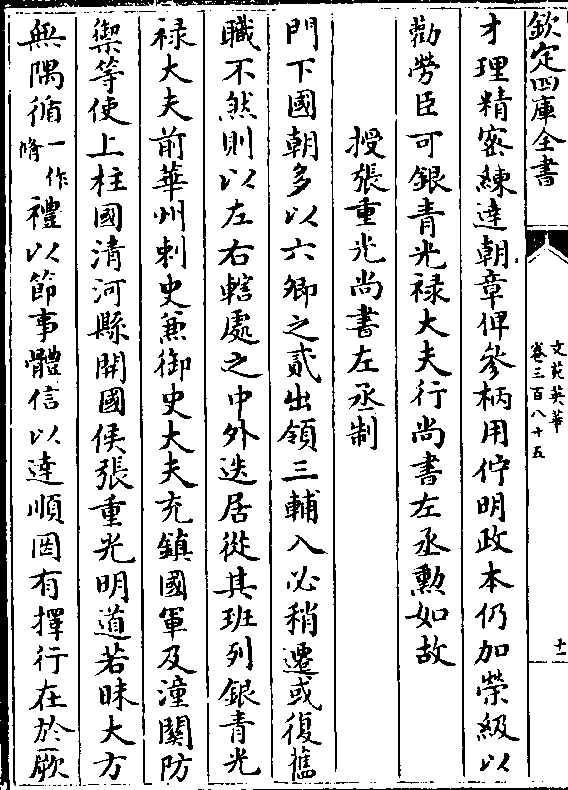 欽定四庫全書
文苑英華
卷三百八十五
十一
才理精密練達朝章俾參柄用佇明政本仍加榮級以
勸勞臣可銀青光禄大夫行尚書左丞勲如故
授張重光尚書左丞制
門下國朝多以六卿之貳出領三輔入必稍遷或復舊
職不然則以左右轄處之中外迭居從其班列銀青光
禄大夫前華州刺史兼御史大夫充鎮國軍及潼關防
禦等使上柱國清河縣開國侯張重光明道若昧大方
無隅循一作脩禮以節事體信以達順罔有擇行在於厥